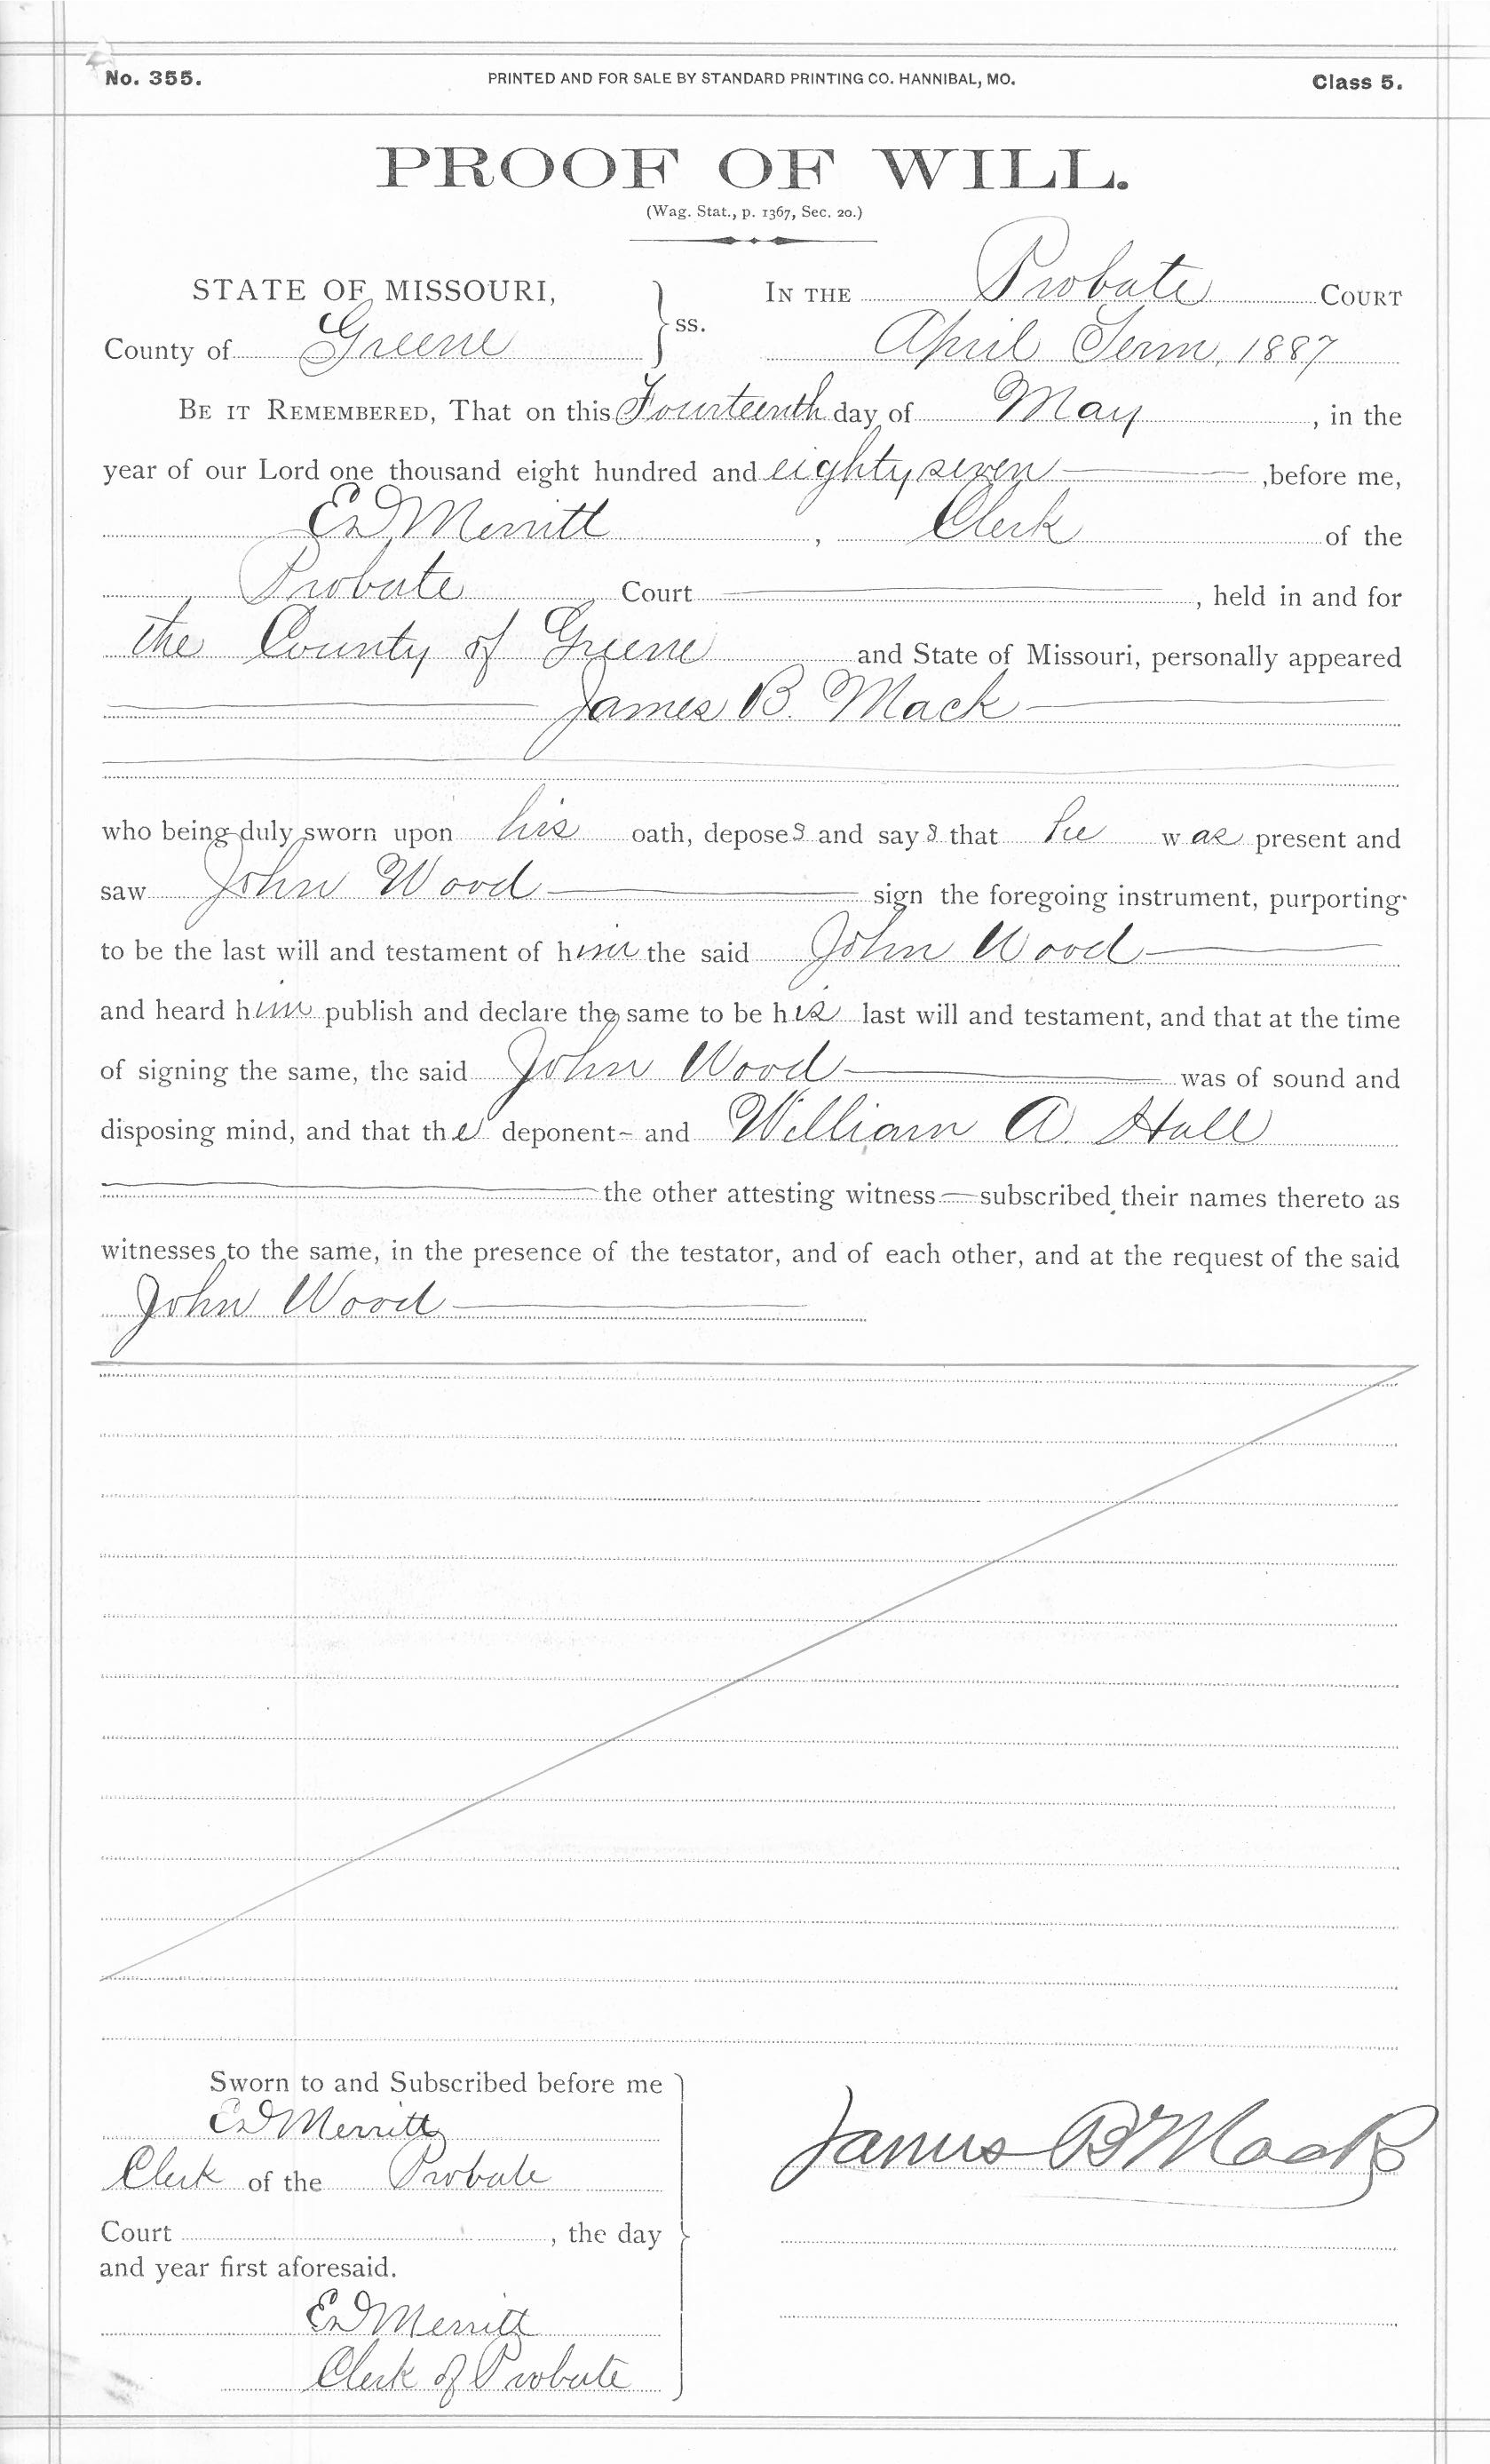 No. 355. PRINTED AND FOR SALE BY STANDARD PRINTING CO. HANNIBAL, MO. Class 5.
PROOF OF WILL.
(Wag. Stat., p. 1367, Sec. 20.)
STATE OF MISSOURI, } ss. IN THE Probate COURT
County of Greene April Term, 1887
BE IT REMEMBERED, That on this Fourteenth day of May, in the
year of our Lord one thousand eight hundred and eighty seven, before me,
ED Merritt, Clerk of the
Probate Court, held in and for
the County of Greene and State of Missouri, personally appeared
James B. Mack
who being duly sworn upon his oath, deposes and says that he was present and
saw John Wood sign the foregoing instrument, purporting
to be the last will and testament of him the said John Wood
and heard him publish and declare the same to be his last will and testament, and that at the time
of signing the same, the said John Wood was of sound and
disposing mind, and that the deponent- and William A. Hall
the other attesting witness—subscribed their names thereto as
witnesses to the same, in the presence of the testator, and of each other, and at the request of the said
John Wood
Sworn to and Subscribed before me
ED Merritt
Clerk of the Probate
Court, the day
and year first aforesaid.
ED Merritt
Clerk of Probate
James B Mack